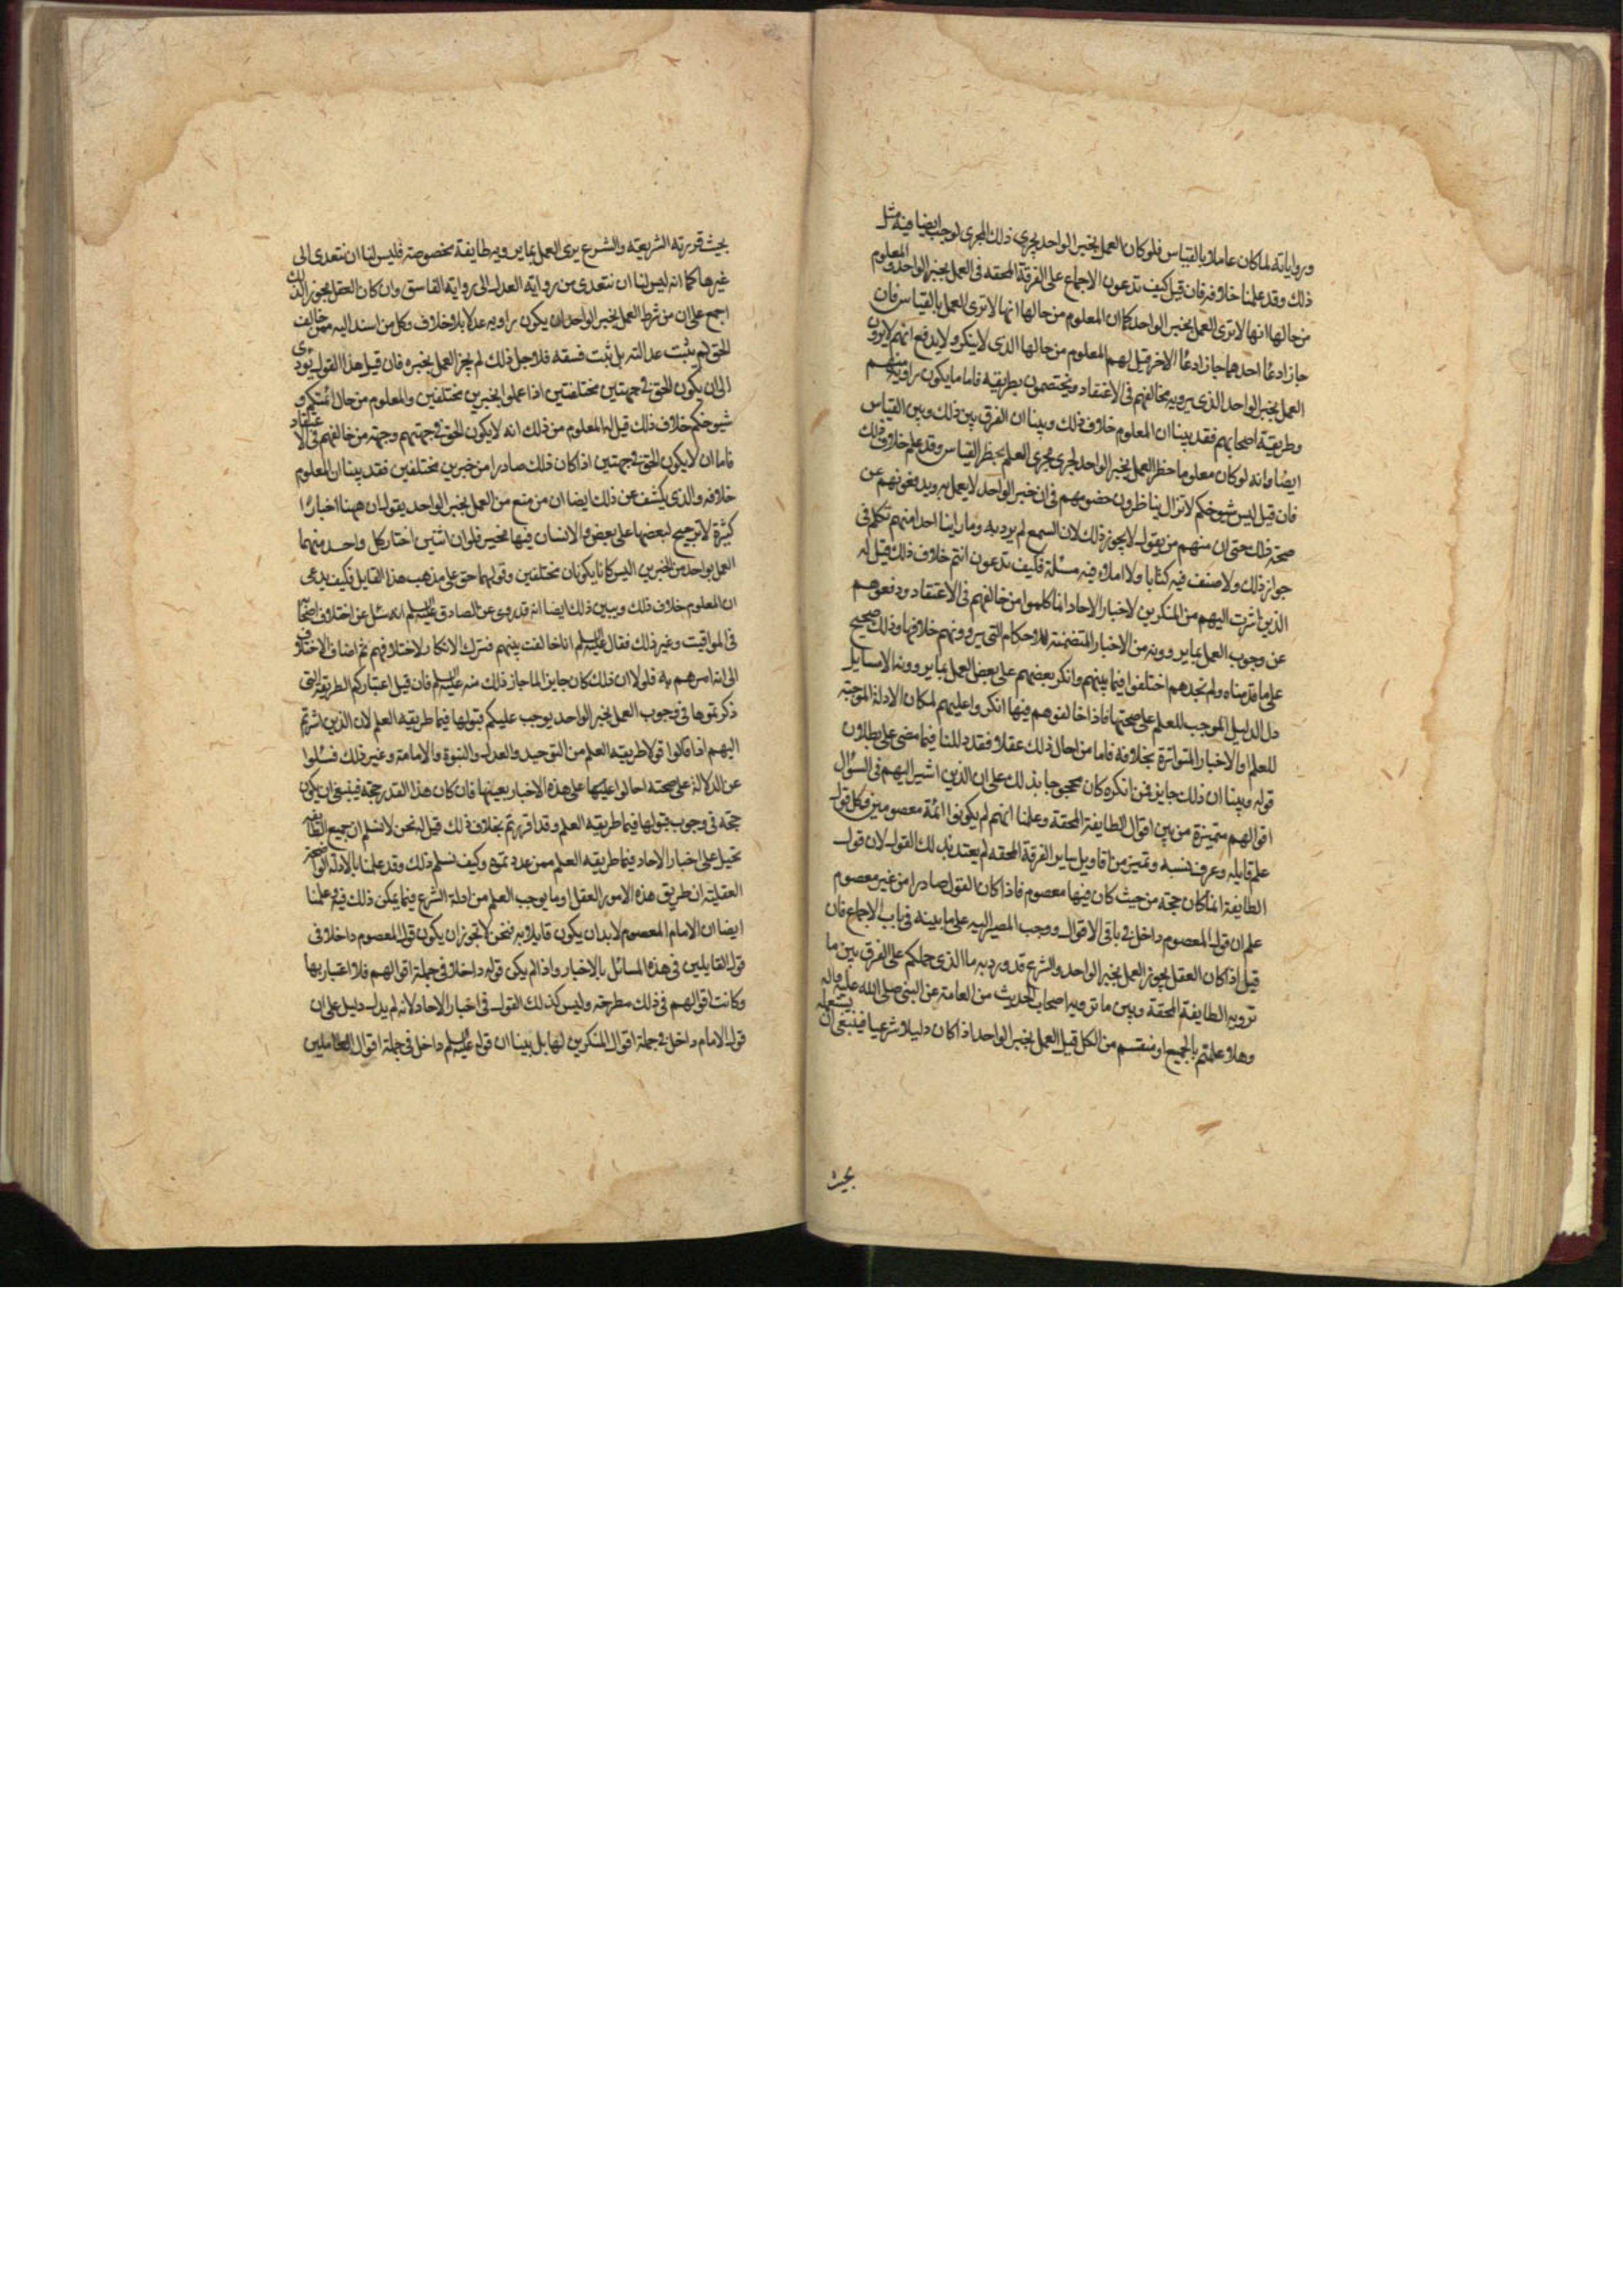 ورواياته لما كان عاملا بالقياس فلو كان العمل بخبر الواحد يجرى ذلك المجرى لوجب ايضا فيه مثل
ذلك وقد علمنا خلافه فان قيل كيف تدعون الاجماع على الفرقة المحقه فى العمل بخبر الواحد والمعلوم
من حالها انها لا ترى العمل بخبر الواحد كما ان المعلوم من حالها انها لا ترى العمل بالقياس فان
جاز ادعا احدهما جاز ادعا الاخر قيل لهم المعلوم من حالها الذى لا ينكر ولا يدفع انهم لا يرون
العمل بخبر الواحد الذى يرويه مخالفهم فى الاعتقاد ويختصون بطريقه فاما ما يكون راويه منهم
وطريقه اصحابهم فقد بينا ان المعلوم خلاف ذلك وبينا ان الفرق بين ذلك وبين القياس
ايضا وانه لو كان معلوما حظر العمل بخبر الواحد لجرى مجرى العلم بحظر القياس وقد علم خلاف ذلك
فان قيل ليس شيوخكم لا تزال يناظرون خصومهم فى ان خبر الواحد لا يعمل به ويدفعونهم عن
صحة ذلك حتى ان منهم من يقول لا يجوز ذلك لان السمع لم يرد به وما راينا احدا منهم تكلم فى
جواز ذلك ولا صنف فيه كتابا ولا املا فيه مسئلة فكيف تدعون انتم خلاف ذلك قيل له
الذين اشرت اليهم من المنكرين لاخبار الاحاد انما كلموا من خالفهم فى الاعتقاد ودفعوهم
عن وجوب العمل بما يروونه من الاخبار المتضمنة للاحكام التى يروونهم خلافها وذلك صحيح
على ما قدمناه ولم نجدهم اختلفوا فيما بينهم وانكر بعضهم على بعض العمل بما يروونه الا مسايل
دل الدليل الموجب للعلم على صحتها فاذا خالفوهم فيها انكروا عليهم لمكان الادلة الموجبة
للعلم او الاخبار المتواترة بخلافه فاما من احال ذلك عقلا فقد دللنا فيما مضى على بطلان
قوله وبينا ان ذلك جايز فمن انكره كان محجوجا بذلك على ان الذين اشير اليهم فى السؤال
اقوالهم متميزة من بين اقوال الطايفة المحقة وعلمنا انهم لم يكونوا ائمة معصومين وكل قول
علم قايله وعرف نسبه وتميز من اقاويل ساير الفرقة المحقه لم يعتد بذلك القول لان قول
الطايفة انما كان حجة من حيث كان فيها معصوم فاذا كان القول صادرا من غير معصوم
علم ان قول المعصوم داخل فى باقى الاقوال ووجب المصير اليه على ما بينه فى باب الاجماع فان
قيل اذا كان العقل يجوز العمل بخبر الواحد والشرع قد ورد به ما الذى حملكم على الفرق بين ما
ترويه الطايفة المحقة وبين ما ترويه اصحاب الحديث من العامة عن النبى صلى الله عليه واله
وهلا علمتم بالجميع او منعتم من الكل قيل العمل بخبر الواحد اذا كان دليلا شرعيا فينبغى ان يستعمله
بحيث
بحيث قررته الشريعة والشرع يرى العمل بما يرويه طايفة مخصوصة فليس لنا ان نتعدى الى
غيرها كما انه ليس لنا ان نتعدى من رواية العدل الى رواية الفاسق وان كان العقل يجوز ذلك
اجمع على ان من شرط العمل بخبر الواحد ان يكون راويه عدلا بلا خلاف وكل من اسند اليه ممن خالف
الحق لم يثبت عدالته بل ثبت فسقه فلاجل ذلك لم يجز العمل بخبره فان قيل هذا القول يودى
الى ان يكون الحق فى جهتين مختلفتين اذا عملوا بخبرين مختلفين والمعلوم من حال ائمتكم و
شيوخكم خلاف ذلك قيل له المعلوم من ذلك انه لا يكون الحق فى جهتهم وجهة من خالفهم فى الاعتقاد
فاما ان لا يكون الحق فى جهتين اذا كان ذلك صادرا من خبرين مختلفين فقد بينا ان المعلوم
خلافه والذى يكشف عن ذلك ايضا ان من منع من العمل بخبر الواحد يقول ان ههنا اخبارا
كثيرة لا ترجيح لبعضها على بعض والانسان فيها مخير فلو ان اثنين اختار كل واحد منهما
العمل بواحد من الخبرين اليس كانا يكونان مختلفين وقولهما حق على مذهب هذا القايل فكيف يدعى
ان المعلوم خلاف ذلك ويبين ذلك ايضا انه قد روى عن الصادق عليه السلم انه سئل عن اختلاف اصحابنا
فى المواقيت وغير ذلك فقال عليه السلم انا خالفت بينهم فترك الانكار لاختلافهم ثم اضاف الاختلاف
الى انه امرهم به فلو لا ان ذلك كان جايزا لما جاز ذلك منه عليه السلم فان قيل اعتباركم الطريقة التى
ذكرتموها فى وجوب العمل بخبر الواحد يوجب عليكم قبولها فيما طريقه العلم لان الذين اشرتم
اليهم اذا قالوا قولا طريقه العلم من التوحيد والعدل والنبوة والامامة وغير ذلك فسئلوا
عن الدلالة على صحته احالوا عليها على هذه الاخبار بعينها فان كان هذا القدر حجة فينبغى ان يكون
حجة فى وجوب قبولها فيما طريقه العلم وقد اقررتم بخلاف ذلك قيل له نحن لا نسلم ان جميع الطايفة
تحيل على اخبار الاحاد فيما طريقه العلم ممن عددتموه وكيف نسلم ذلك وقد علمنا بالادلة الواضحة
العقلية ان طريق هذه الامور العقل او ما يوجب العلم من ادلة الشرع فيما يمكن ذلك فيه وعلمنا
ايضا ان الامام المعصوم لا بد ان يكون قايلا به فنحن لا نجوز ان يكون قول المعصوم داخلا فى
قول القايلين فى هذه المسائل بالاخبار واذا لم يكن قوله داخلا فى جملة اقوالهم فلا اعتبار بها
وكانت اقوالهم فى ذلك مطرحة وليس كذلك القول فى اخبار الاحاد لانه لم يدل دليل على ان
قول الامام داخل فى جملة اقوال المنكرين لها بل بينا ان قوله عليه السلم داخل فى جملة اقوال العاملين